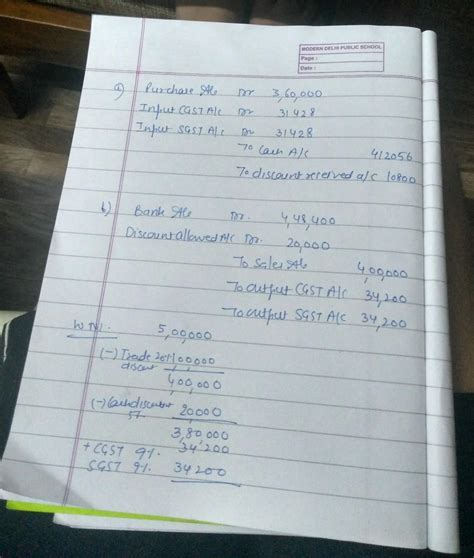 MODERN DELHI PUBLIC SCHOOL
Page :
Date :
a) Purchase A/c Dr 3,60,000
Input CGST A/c Dr 31428
Input SGST A/c Dr 31428
To Cash A/c 412056
To discount received a/c 10800
b) Bank A/c Dr. 4,48,400
Discount Allowed A/C Dr. 20,000
To Sales A/c 4,00,000
To output CGST A/C 34,200
To output SGST A/C 34,200
W.N1. 5,00,000
(-) Trade 20% 1,00,000
discount
4,00,000
(-) Cash discount 20,000
5%
3,80,000
+ CGST 9% 34,200
SGST 9% 34200